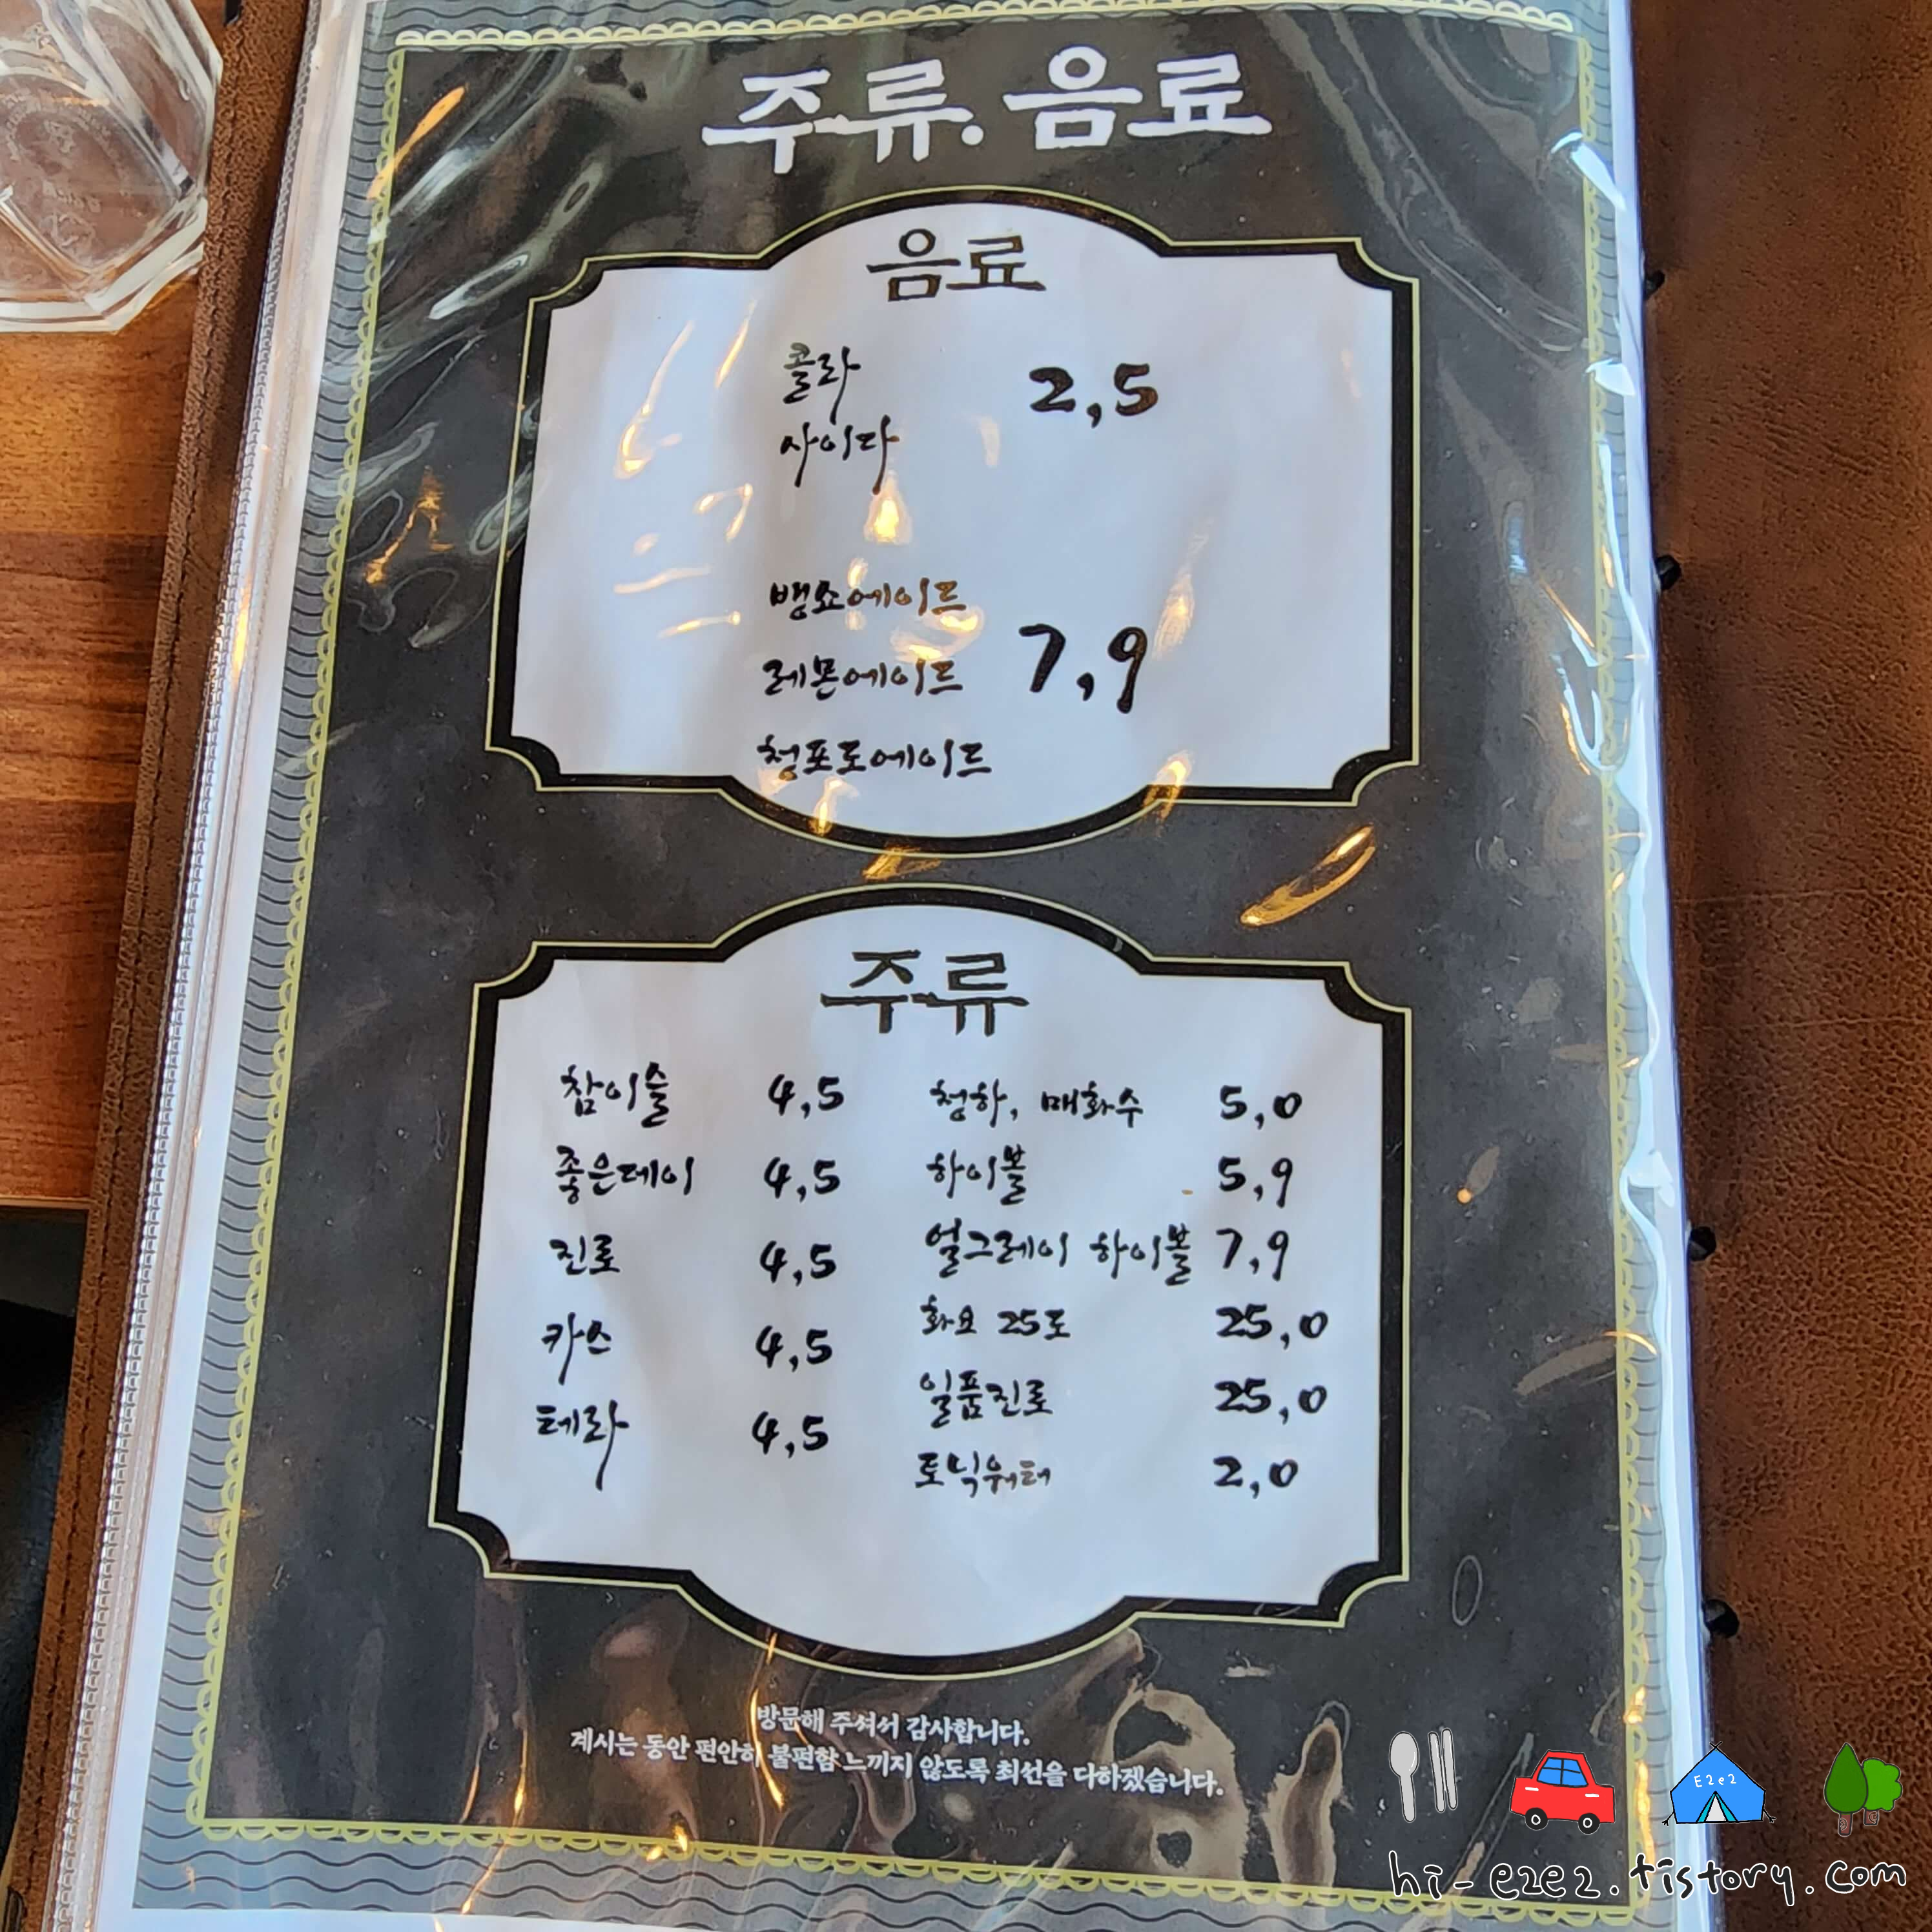 주류. 음료
음료
콜라
사이다
2,5
뱅쇼에이드
레몬에이드
청포도에이드
7,9
주류
참이슬 4,5
좋은데이 4,5
진로 4,5
카스 4,5
테라 4,5
청하, 매화수 5,0
하이볼 5,9
얼그레이 하이볼 7,9
화요 25도 25,0
일품진로 25,0
토닉워터 2,0
방문해 주셔서 감사합니다.
계시는 동안 편안히 불편함 느끼지 않도록 최선을 다하겠습니다.
E2e2
hi-e2e2.tistory.com